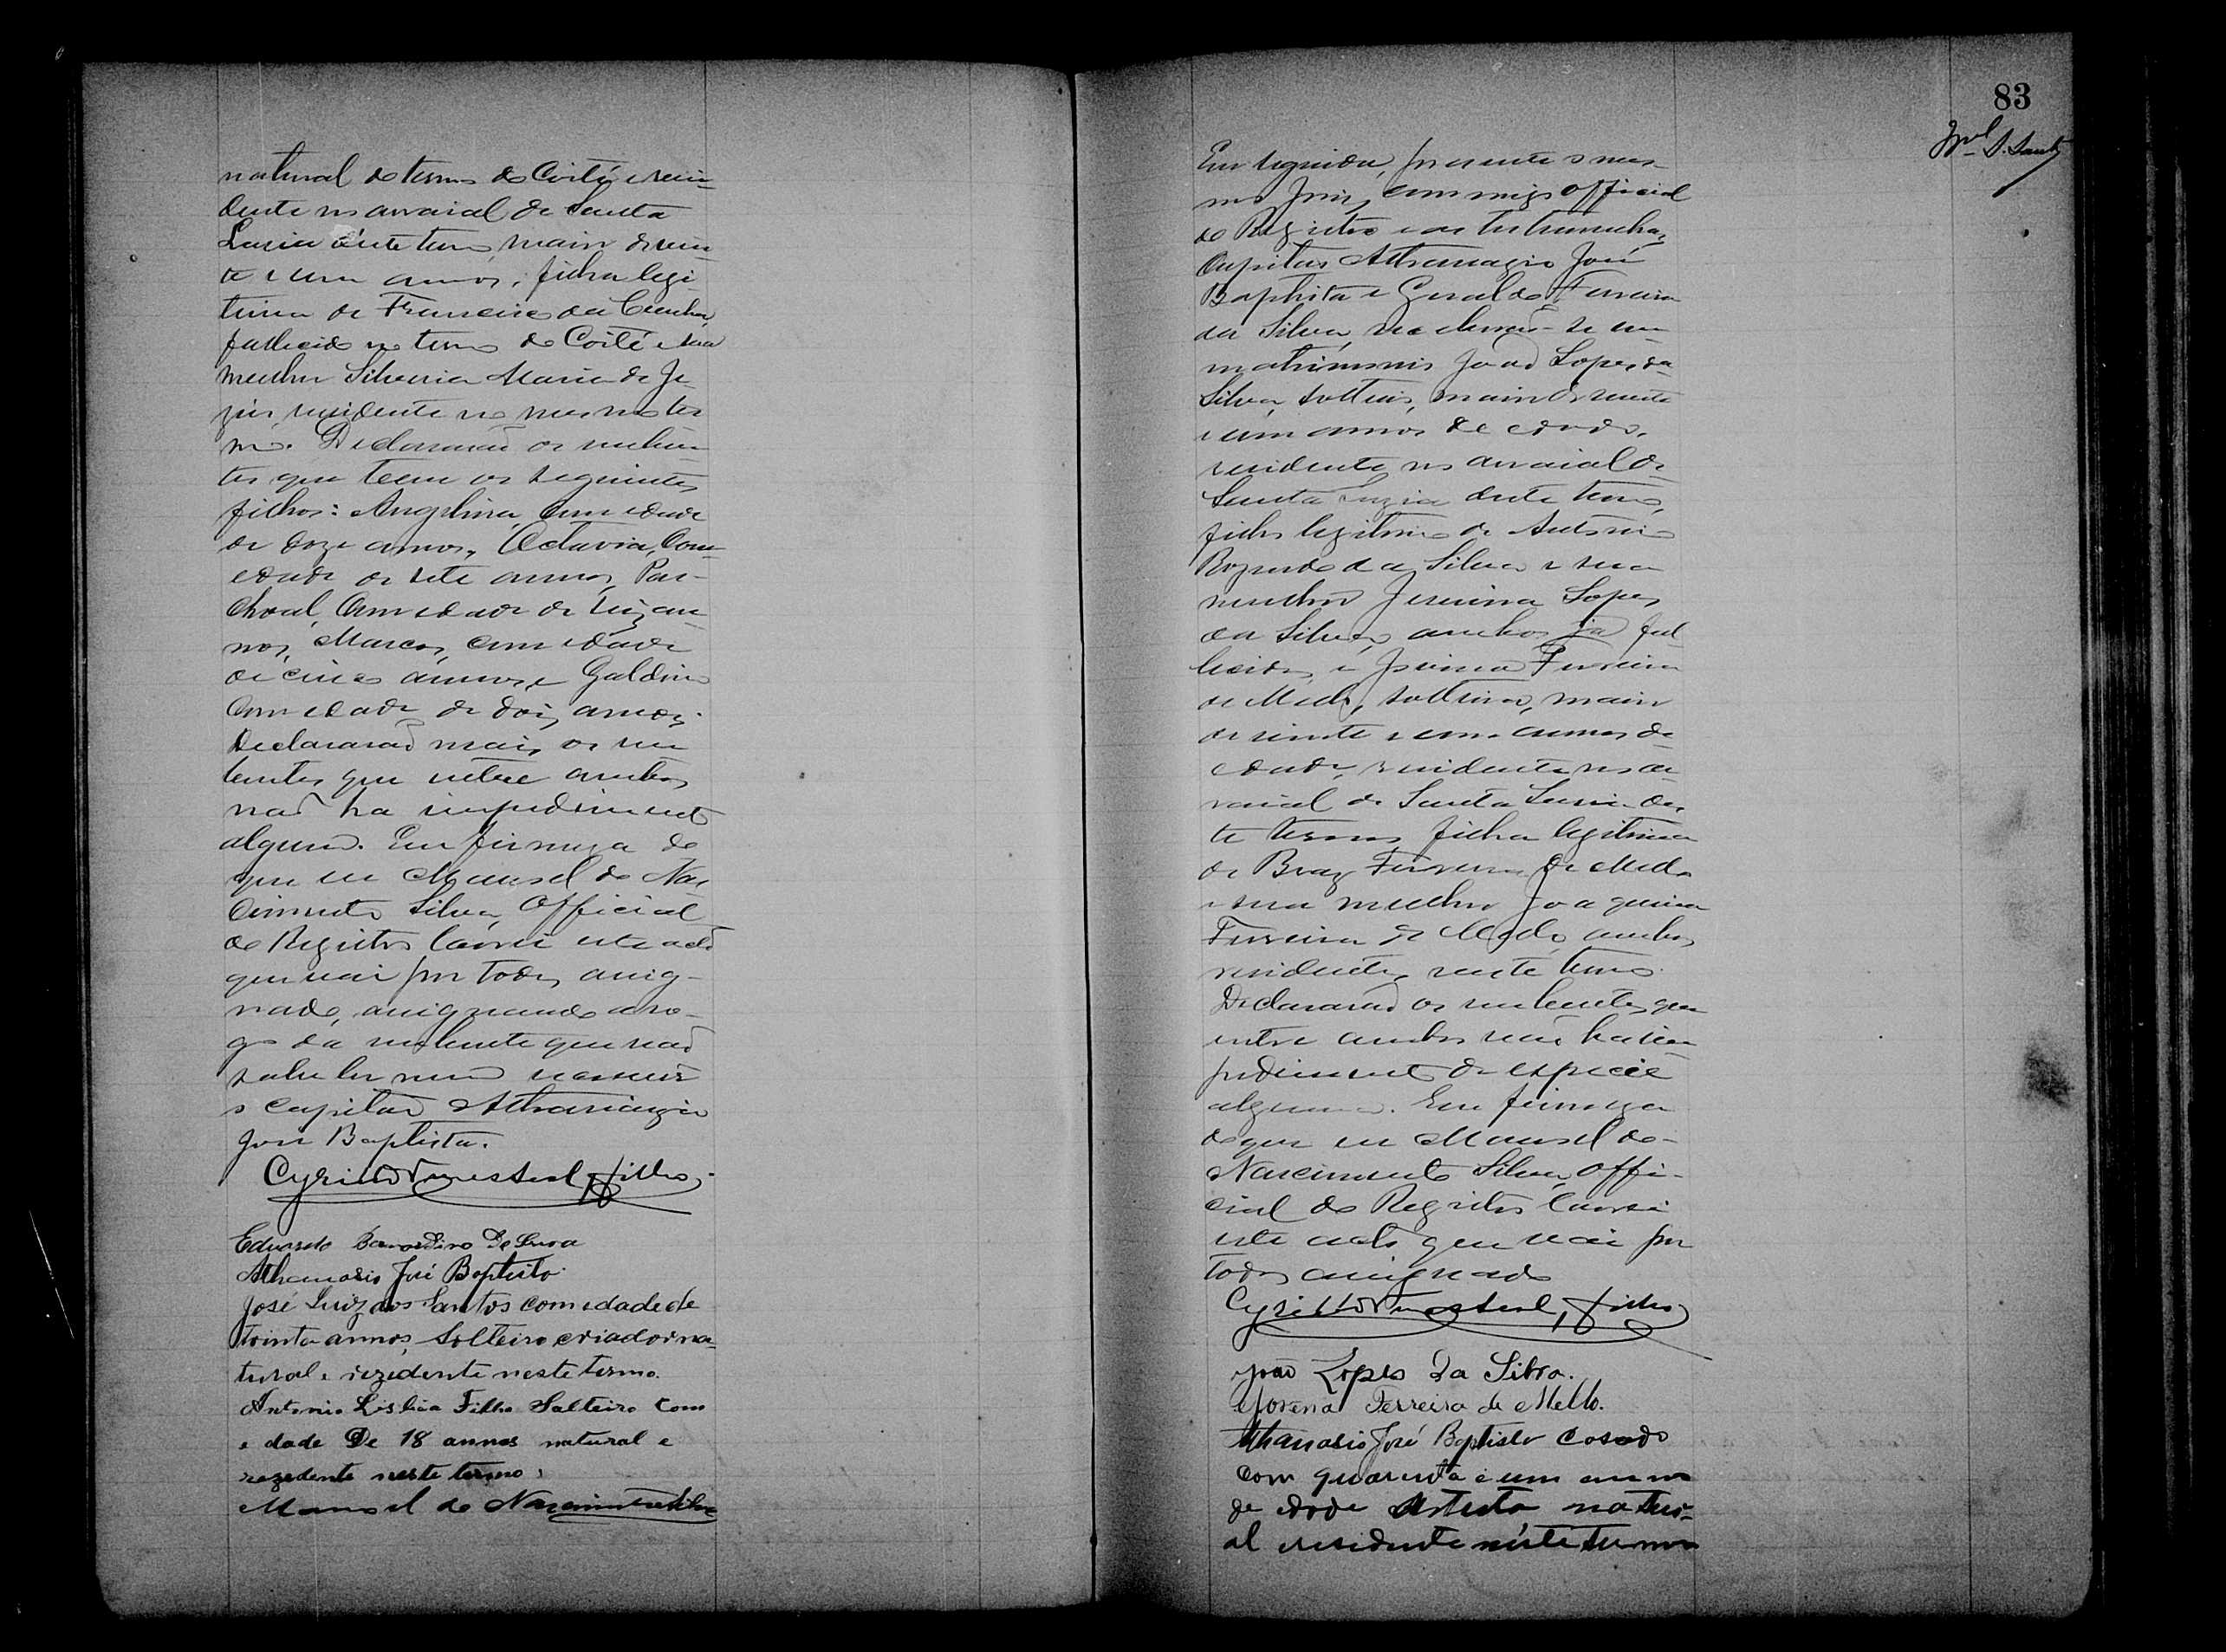 natural do termo de Coité e resi-
dente no arraial de Santa
Luzia deste termo, maior de vin-
te e um annos, filha legi-
tima de Francisco da Cunha,
fallecido no termo do Coité e sua
mulher Silveria Maria de Je-
zus, residente no mesmo ter
mo. Declararaõ os nuben
tes que teem os seguintes
filhos: Angelina, com edade
de doze annos, Octavia, com
edade de sete annos, Pas-
choal, com edade de seis an-
nos, Marcos, com edade
de cinco annos, e Galdino
com edade de dois annos.
Declararaõ mais os nu
bentes que entre ambos
naõ ha impedimento
algum. Em firmeza do
que eu Manoel do Nas
cimento Silva, Official
do Registro lavrei este acto
que vai por todos assig-
nado, assignando a ro-
go da nubente que naõ
sabe ler nem escrever
o Capitaõ Athanazio
José Baptista.
Cyrillo filho.
Eduardo Bernardino De
Athanasio José Baptista
José Luiz dos Santos com edade de
trinta annos, Solteiro criador na-
tural e rezedente neste termo.
Antonio Lisbôa Filho Salteiro Com
e dade De 18 annos natural e
rezedente neste termo.
Manoel do Nascimento Silva
83
Em seguida, presente o mes-
mo Juiz, commigo Official
do Registro e as testemunhas
Capitaõ Athanazio José
Baptista e Geraldo Ferreira
da Silva, receberaõ-se em
matrimonio Joaõ Lopes da
Silva, solteiro, maior de vinte
e um annos de edade,
residente no arraial de
Santa Luzia deste termo,
filho legitimo de Antonio
da Silva e sua
mulher Lopes
da Silva, ambos ja fal-
lecidos, e Ferreira
de Mello, solteira, maior
de vinte e um annos de
edade, residente no ar-
raial de Santa Luzia des-
te termo, filha legitima
de Braz Ferreira de Mello
e sua mulher Joaquina
Ferreira de Mello, ambos
residentes neste termo.
Declararaõ os nubentes que
entre ambos naõ ha im
pedimento de especie
alguma. Em firmeza
do que eu Manoel do
Nascimento Silva, Offi-
cial do Registro lavrei
este acto que vai por
todos assignado
Cyrillo filho
João Lopes da Silva.
Ferreira de Mello.
Athanasio José Baptista Casado
com quarenta e um annos
de edade Artista, natur-
al e residente néste termo